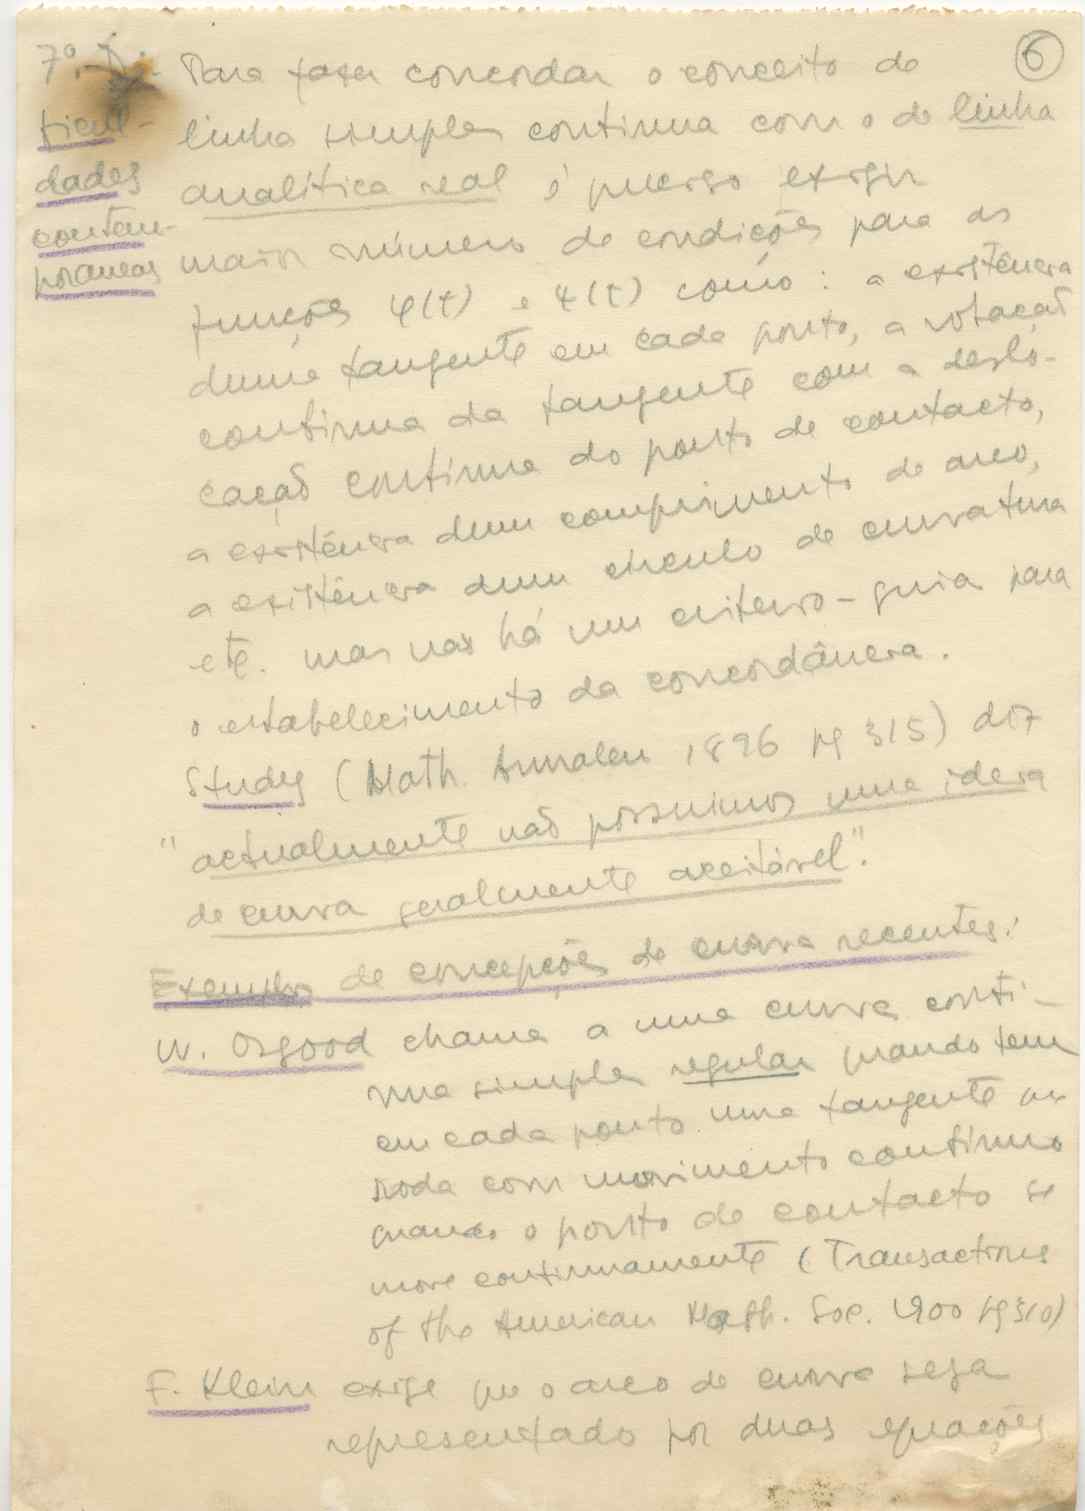 6
7º. Di-
ficul-
dades
contem-
poraneas
Para fazer concordar o conceito de
linha simples continua com o de linha
analítica real é preciso exigir
maior número de condições para as
funções φ(t) e ψ(t) como: a existência
duma tangente em cada ponto, a rotação
continua da tangente com a deslo-
cação continua do ponto de contacto,
a existência dum comprimento de arco,
a existência dum circulo de curvatura
etc. mas não há um criterio-guia para
o estabelecimento da concordância.
Study (Math. Annalen 1896 pg 315) diz
"actualmente não possuimos uma ideia
de curva geralmente aceitável".
Exemplos de concepções de curva recentes:
W. Osgood chama a uma curva conti-
nua simples regular quando tem
em cada ponto uma tangente que
roda com movimento continuo
quando o ponto de contacto se
move continuamente (Transactions
of the American Math. Soc. 1900 pg 310)
F. Klein exige que o arco de curva seja
representado por duas equações